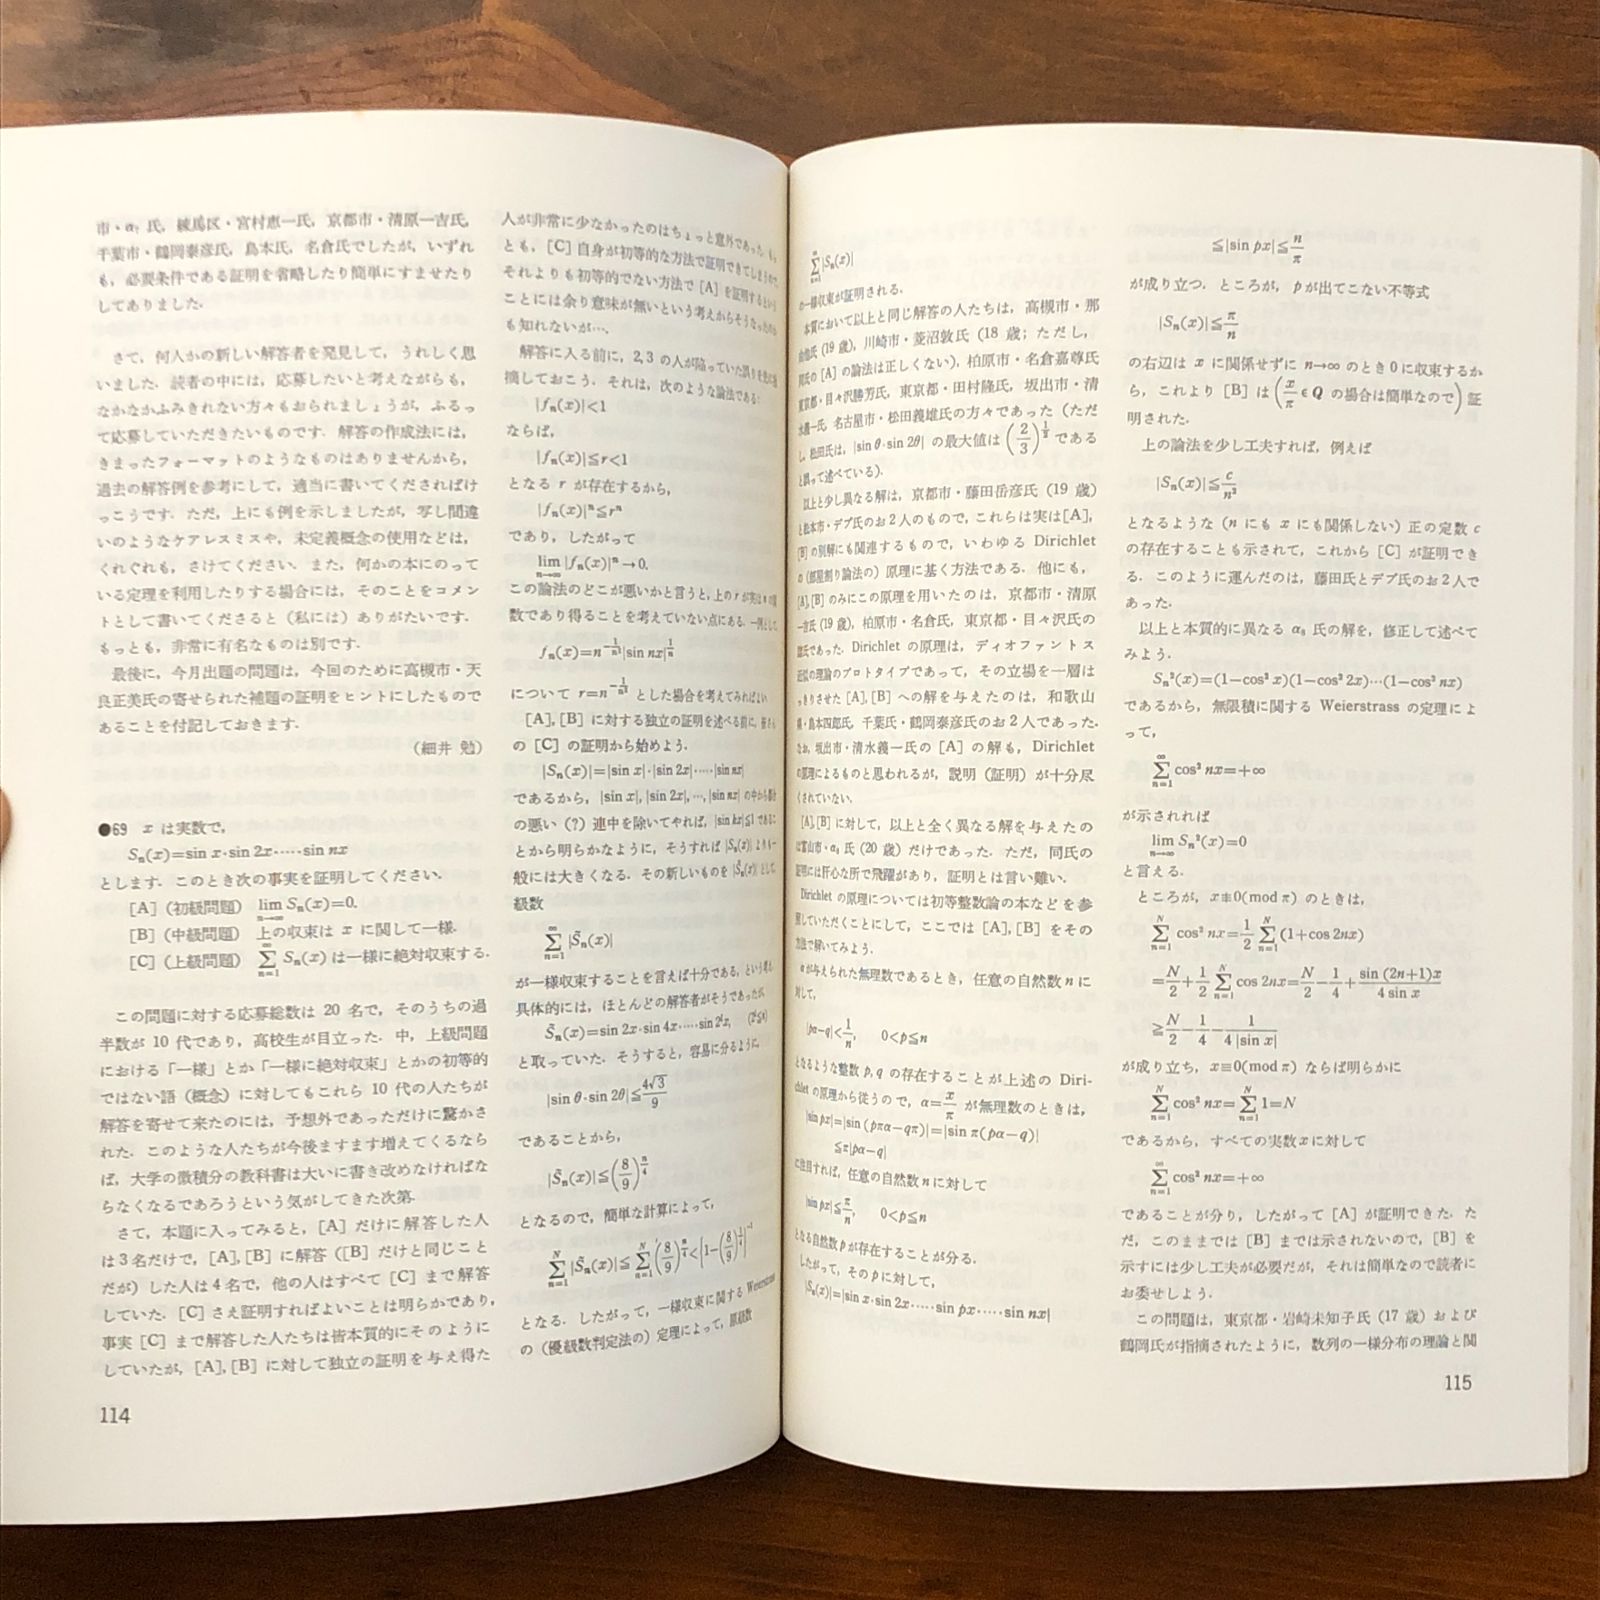 市・α₇ 氏, 練馬区・宮村恵一氏, 京都市・清原一吉氏,
千葉市・鶴岡泰彦氏, 島本氏, 名倉氏でしたが, いずれ
も, 必要条件である証明を省略したり簡単にすませたり
してありました.
さて, 何人かの新しい解答者を発見して, うれしく思
いました. 読者の中には, 応募したいと考えながらも,
なかなかふみきれない方々もおられましょうが, ふるっ
て応募していただきたいものです. 解答の作成法には,
きまったフォーマットのようなものはありませんから,
過去の解答例を参考にして, 適当に書いてくださればけ
っこうです. ただ, 上にも例を示しましたが, 写し間違
いのようなケアレスミスや, 未定義概念の使用などは,
くれぐれも, さけてください. また, 何かの本にのって
いる定理を利用したりする場合には, そのことをコメン
トとして書いてくださると (私には) ありがたいです.
もっとも, 非常に有名なものは別です.
最後に, 今月出題の問題は, 今回のために高槻市・天
良正美氏の寄せられた補題の証明をヒントにしたもので
あることを付記しておきます.
(細井 勉)
●69 x は実数で,
Sₙ(x)=sin x·sin 2x·····sin nx
とします. このとき次の事実を証明してください.
[A] (初級問題) lim_{n→∞} Sₙ(x)=0.
[B] (中級問題) 上の収束は x に関して一様.
[C] (上級問題) Σ_{n=1}^{∞} Sₙ(x) は一様に絶対収束する.
この問題に対する応募総数は 20 名で, そのうちの過
半数が 10 代であり, 高校生が目立った. 中, 上級問題
における「一様」とか「一様に絶対収束」とかの初等的
ではない語 (概念) に対してもこれら 10 代の人たちが
解答を寄せて来たのには, 予想外であっただけに驚かさ
れた. このような人たちが今後ますます増えてくるなら
ば, 大学の微積分の教科書は大いに書き改めなければな
らなくなるであろうという気がしてきた次第.
さて, 本題に入ってみると, [A] だけに解答した人
は3名だけで, [A], [B] に解答 ([B] だけと同じこと
だが) した人は4名で, 他の人はすべて [C] まで解答
していた. [C] さえ証明すればよいことは明らかであり,
事実 [C] まで解答した人たちは皆本質的にそのように
していたが, [A], [B] に対して独立の証明を与え得た
114
人が非常に少なかったのはちょっと意外であった. もっ
とも, [C] 自身が初等的な方法で証明できてしまうので,
それよりも初等的でない方法で [A] を証明するという
ことには余り意味が無いという考えからそうなったのか
も知れないが….
解答に入る前に, 2, 3 の人が陥っていた誤りを先に指
摘しておこう. それは, 次のような論法である:
|fₙ(x)|<1
ならば,
|fₙ(x)|≦r<1
となる r が存在するから,
|fₙ(x)|ⁿ≦rⁿ
であり, したがって
lim_{n→∞} |fₙ(x)|ⁿ→0.
この論法のどこが悪いかと言うと, 上の r が実は n の関
数であり得ることを考えていない点にある. 一例として,
fₙ(x)=n^{-1/n²}|sin nx|^{1/n}
について r=n^{-1/n²} とした場合を考えてみればよい
[A], [B] に対する独立の証明を述べる前に,
の [C] の証明から始めよう.
|Sₙ(x)|=|sin x|·|sin 2x|·····|sin nx|
であるから, |sin x|, |sin 2x|, …, |sin nx| の中から都合
の悪い (?) 連中を除いてやれば, |sin kx|≦1 であるこ
とから明らかなように, そうすれば |Sₙ(x)| よりも一
般には大きくなる. その新しいものを |S̃ₙ(x)| として,
級数
Σ_{n=1}^{∞} |S̃ₙ(x)|
が一様収束することを言えば十分である, という
具体的には, ほとんどの解答者がそうであったが,
S̃ₙ(x)=sin 2x·sin 4x·····sin 2ˡx, (2ˡ≦n)
と取っていた. そうすると, 容易に分るように,
|sin θ·sin 2θ|≦4√3/9
であることから,
|S̃ₙ(x)|≦(8/9)^{n/4}
となるので, 簡単な計算によって,
Σ_{n=1}^{N} |S̃ₙ(x)|≦Σ_{n=1}^{N} (8/9)^{n/4}<{1−(8/9)^{1/4}}^{−1}
となる. したがって, 一様収束に関する Weierstrass
の (優級数判定法の) 定理によって, 原級数
Σ_{n=1}^{∞} |Sₙ(x)|
の一様収束が証明される.
本質において以上と同じ解答の人たちは, 高槻市・那
氏 (19 歳), 川崎市・菱沼敦氏 (18 歳; ただし,
同氏の [A] の論法は正しくない), 柏原市・名倉嘉尊氏
東京都・目々沢勝芳氏, 東京都・田村隆氏, 坂出市・清
水義一氏, 名古屋市・松田義雄氏の方々であった (ただ
し, 松田氏は, |sin θ·sin 2θ| の最大値は (2/3)^{1/2} である
と誤って述べている).
以上と少し異なる解は, 京都市・藤田岳彦氏 (19 歳)
と松本市・デブ氏のお2人のもので, これらは実は[A],
[B] の別解にも関連するもので, いわゆる Dirichlet
の (部屋割り論法の) 原理に基く方法である. 他にも,
[A], [B] のみにこの原理を用いたのは, 京都市・清原
一吉氏 (19 歳), 柏原市・名倉氏, 東京都・目々沢氏の
諸氏であった. Dirichlet の原理は, ディオファントス
近似の理論のプロトタイプであって, その立場を一層は
っきりさせた [A], [B] への解を与えたのは, 和歌山
県・島本四郎氏, 千葉氏・鶴岡泰彦氏のお2人であった.
なお, 坂出市・清水義一氏の [A] の解も, Dirichlet
の原理によるものと思われるが, 説明 (証明) が十分尽
くされていない.
[A], [B] に対して, 以上と全く異なる解を与えたの
は富山市・α₈ 氏 (20 歳) だけであった. ただ, 同氏の
証明には肝心な所で飛躍があり, 証明とは言い難い.
Dirichlet の原理については初等整数論の本などを参
照していただくことにして, ここでは [A], [B] をその
方法で解いてみよう.
α が与えられた無理数であるとき, 任意の自然数 n に
対して,
|pα−q|<1/n, 0<p≦n
となるような整数 p, q の存在することが上述の Diri-
chlet の原理から従うので, α=x/π が無理数のときは,
|sin px|=|sin (pπα−qπ)|=|sin π(pα−q)|
≦π|pα−q|
に注目すれば, 任意の自然数 n に対して
|sin px|≦π/n, 0<p≦n
となる自然数 p が存在することが分る.
したがって, その p に対して,
|Sₙ(x)|=|sin x·sin 2x·····sin px·····sin nx|
≦|sin px|≦n/π
が成り立つ. ところが, p が出てこない不等式
|Sₙ(x)|≦π/n
の右辺は x に関係せずに n→∞ のとき 0 に収束するか
ら, これより [B] は (x/π∈Q の場合は簡単なので) 証
明された.
上の論法を少し工夫すれば, 例えば
|Sₙ(x)|≦c/n²
となるような (n にも x にも関係しない) 正の定数 c
の存在することも示されて, これから [C] が証明でき
る. このように運んだのは, 藤田氏とデブ氏のお2人で
あった.
以上と本質的に異なる α₈ 氏の解を, 修正して述べて
みよう.
Sₙ²(x)=(1−cos² x)(1−cos² 2x)···(1−cos² nx)
であるから, 無限積に関する Weierstrass の定理によ
って,
Σ_{n=1}^{∞} cos² nx=+∞
が示されれば
lim_{n→∞} Sₙ²(x)=0
と言える.
ところが, x≢0(mod π) のときは,
Σ_{n=1}^{N} cos² nx=1/2 Σ_{n=1}^{N} (1+cos 2nx)
=N/2+1/2 Σ_{n=1}^{N} cos 2nx=N/2−1/4+sin (2n+1)x/4 sin x
≧N/2−1/4−1/4|sin x|
が成り立ち, x≡0(mod π) ならば明らかに
Σ_{n=1}^{N} cos² nx=Σ_{n=1}^{N} 1=N
であるから, すべての実数 x に対して
Σ_{n=1}^{∞} cos² nx=+∞
であることが分り, したがって [A] が証明できた. た
だ, このままでは [B] までは示されないので, [B] を
示すには少し工夫が必要だが, それは簡単なので読者に
お委せしよう.
この問題は, 東京都・岩崎未知子氏 (17 歳) および
鶴岡氏が指摘されたように, 数列の一様分布の理論と関
115